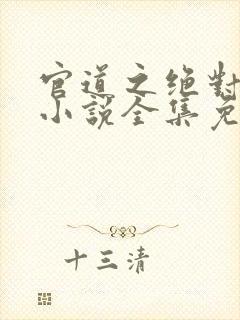 官道之绝对
小说全集免
十三清